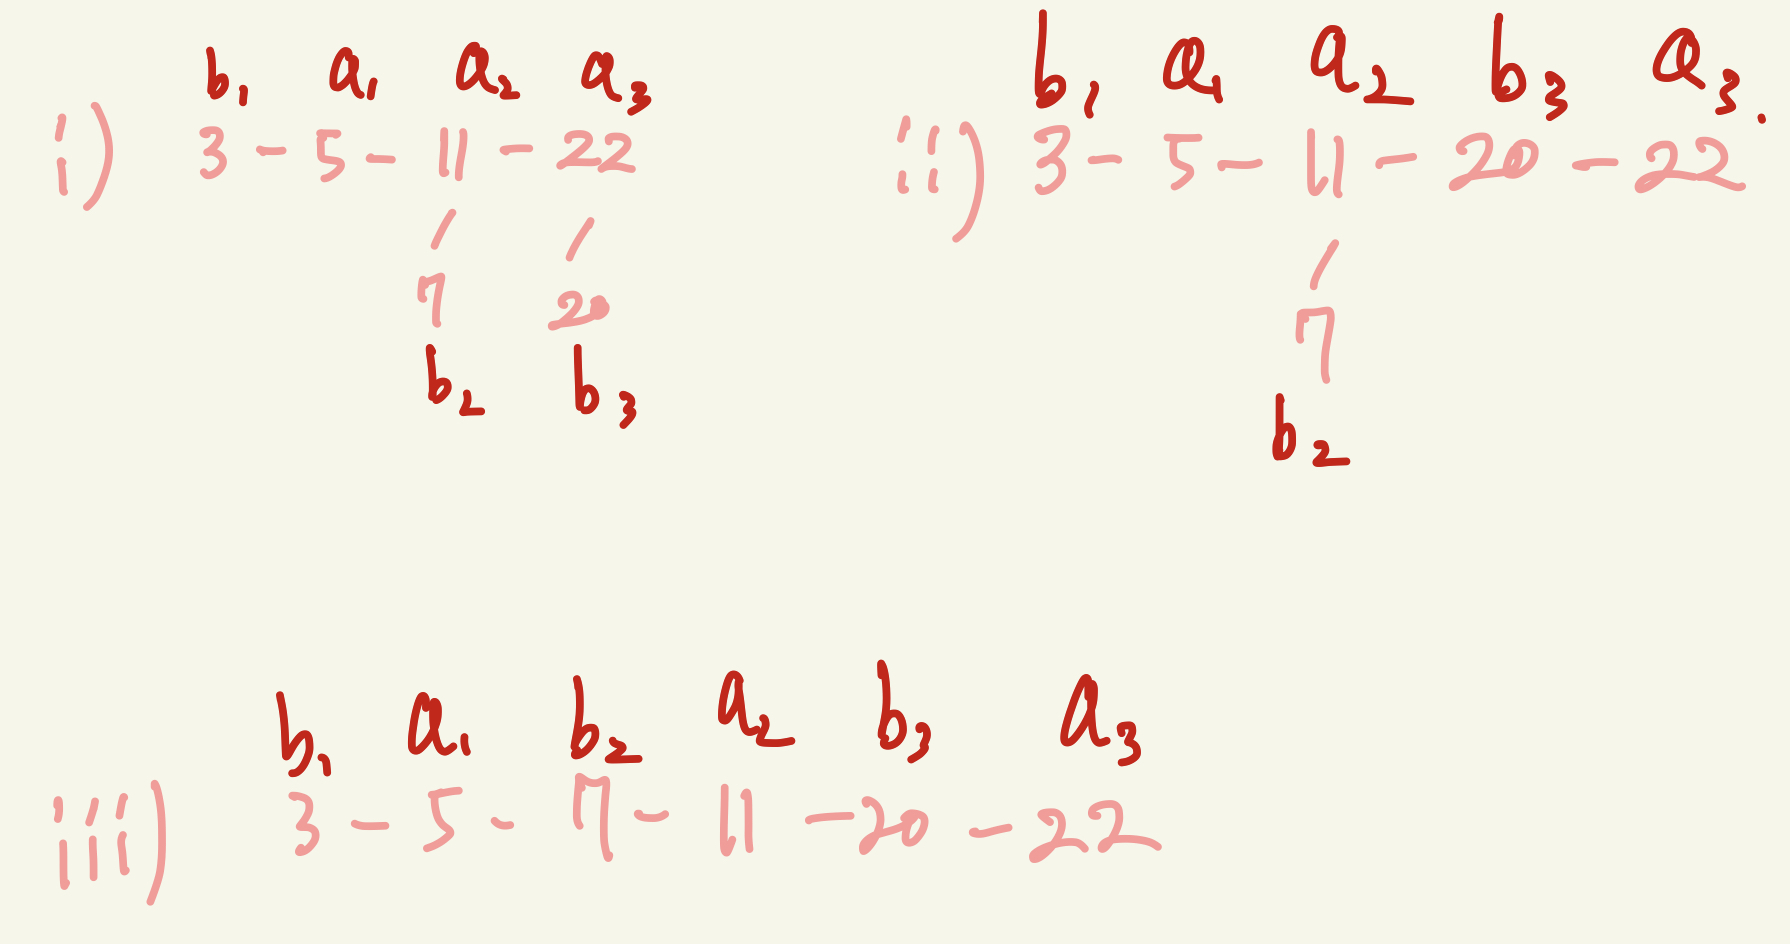 b₁ a₁ a₂ a₃
i) 3 - 5 - 11 - 22
/ /
7 20
b₂ b₃
b₁ a₁ a₂ b₃ a₃.
ii) 3 - 5 - 11 - 20 - 22
/
7
b₂
b₁ a₁ b₂ a₂ b₃ a₃
iii) 3 - 5 - 7 - 11 - 20 - 22